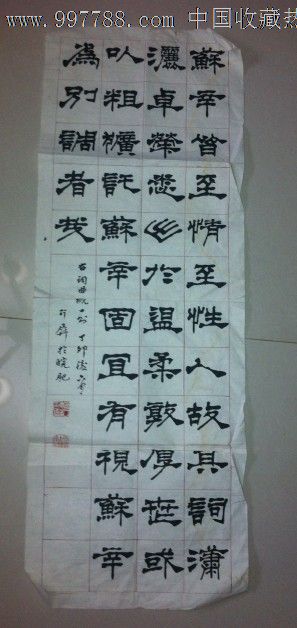 www.997788.com 中国收藏热
蘇辛皆至情至性人故其詞瀟
灑卓犖悉出於溫柔敦厚世或
㕥粗獷託蘇辛固宜有視蘇辛
為別調者哉
詞曲概一則 丁卯
於皖肥